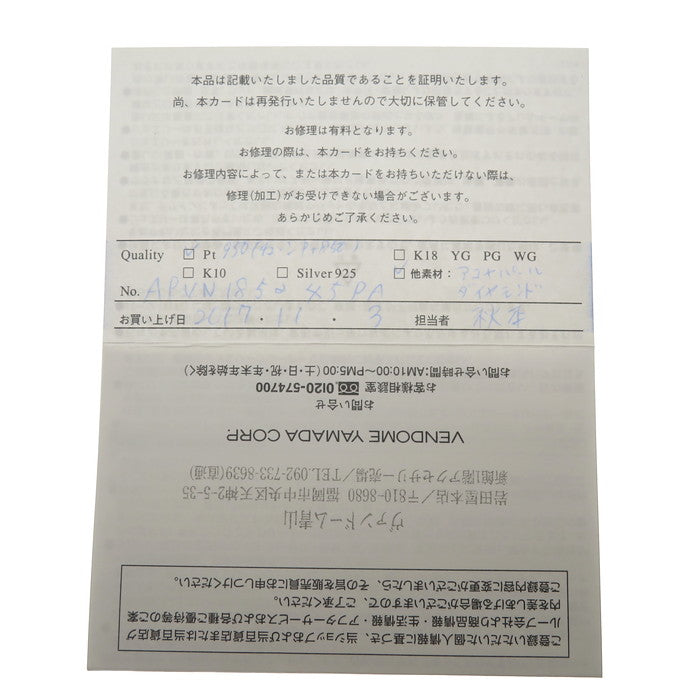 本品は記載いたしました品質であることを証明いたします。
尚、本カードは再発行いたしませんので大切に保管してください。
お修理は有料となります。
お修理の際は、本カードをお持ちください。
お修理内容によって、または本カードをお持ちいただけない際は、
修理(加工)がお受けできない場合がございます。
あらかじめご了承ください。
Quality ☑ Pt 950 ☐ K18 YG PG WG
☐ K10 ☐ Silver 925 ☑ 他素材: アコヤパール
No. APVN1852 45PA ダイヤモンド
お買い上げ日 2017・11・3 担当者 秋本
お問い合せ時間:AM10:00〜PM5:00(土・日・祝・年末年始を除く)
お客様相談室 0120-574700
お問い合せ
VENDOME YAMADA CORP.
新館1階アクセサリー売場/TEL.092-733-8639(直通)
岩田屋本店/〒810-8680 福岡市中央区天神2-5-35
ヴァンドーム青山
ご登録いただいた個人情報に基づき、当ショップおよび当百貨店または当百貨店グ
ループ会社より商品情報・生活情報・アフターサービスおよび各種ご優待等のご案
内を差しあげる場合がございますので、ご了承ください。
ご登録内容に変更がございましたら、その旨を販売員にお申しつけください。